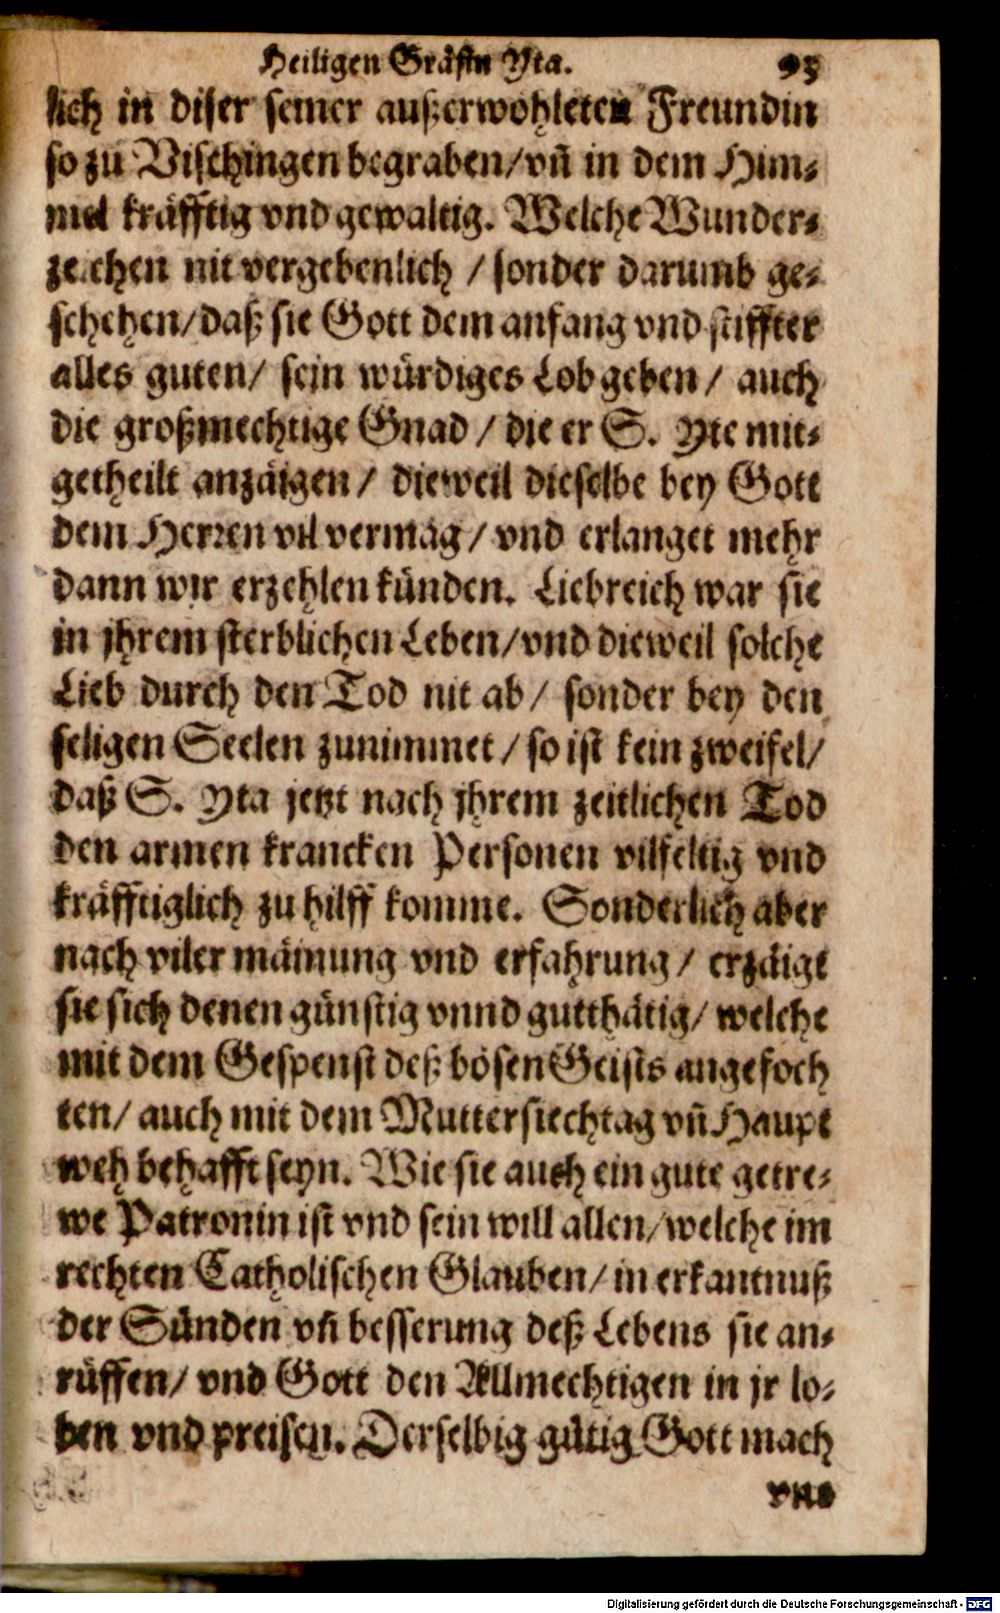 Heiligen Gräfin Yta. 95
lich in diser seiner außerwöhleten Freundin
so zu Vischingen begraben/vñ in dem Him-
mel kräfftig vnd gewaltig. Welche Wunder-
zeichen nit vergebenlich / sonder darumb ge-
schehen/daß sie Gott dem anfang vnd stiffter
alles guten/ sein würdiges Lob geben / auch
die großmechtige Gnad / die er S. Yte mit-
getheilt anzäigen / dieweil dieselbe bey Gott
dem Herren vil vermag / vnd erlanget mehr
dann wir erzehlen künden. Liebreich war sie
in jhrem sterblichen Leben/vnd dieweil solche
Lieb durch den Tod nit ab / sonder bey den
seligen Seelen zunimmet / so ist kein zweifel/
daß S. Yta jetzt nach jhrem zeitlichen Tod
den armen krancken Personen vilfeltig vnd
kräfftiglich zu hilff komme. Sonderlich aber
nach viler mäinung vnd erfahrung / erzäigt
sie sich denen günstig vnnd gutthätig/ welche
mit dem Gespenst deß bösen Geists angefoch
ten/ auch mit dem Muttersiechtag vñ Haupt
weh behafft seyn. Wie sie auch ein gute getre-
we Patronin ist vnd sein will allen/welche im
rechten Catholischen Glauben/ in erkantnuß
der Sünden vñ besserung deß Lebens sie an-
rüffen/ vnd Gott den Allmechtigen in jr lo-
ben vnd preisen. Derselbig gütig Gott mach
vns
Digitalisierung gefördert durch die Deutsche Forschungsgemeinschaft - DFG